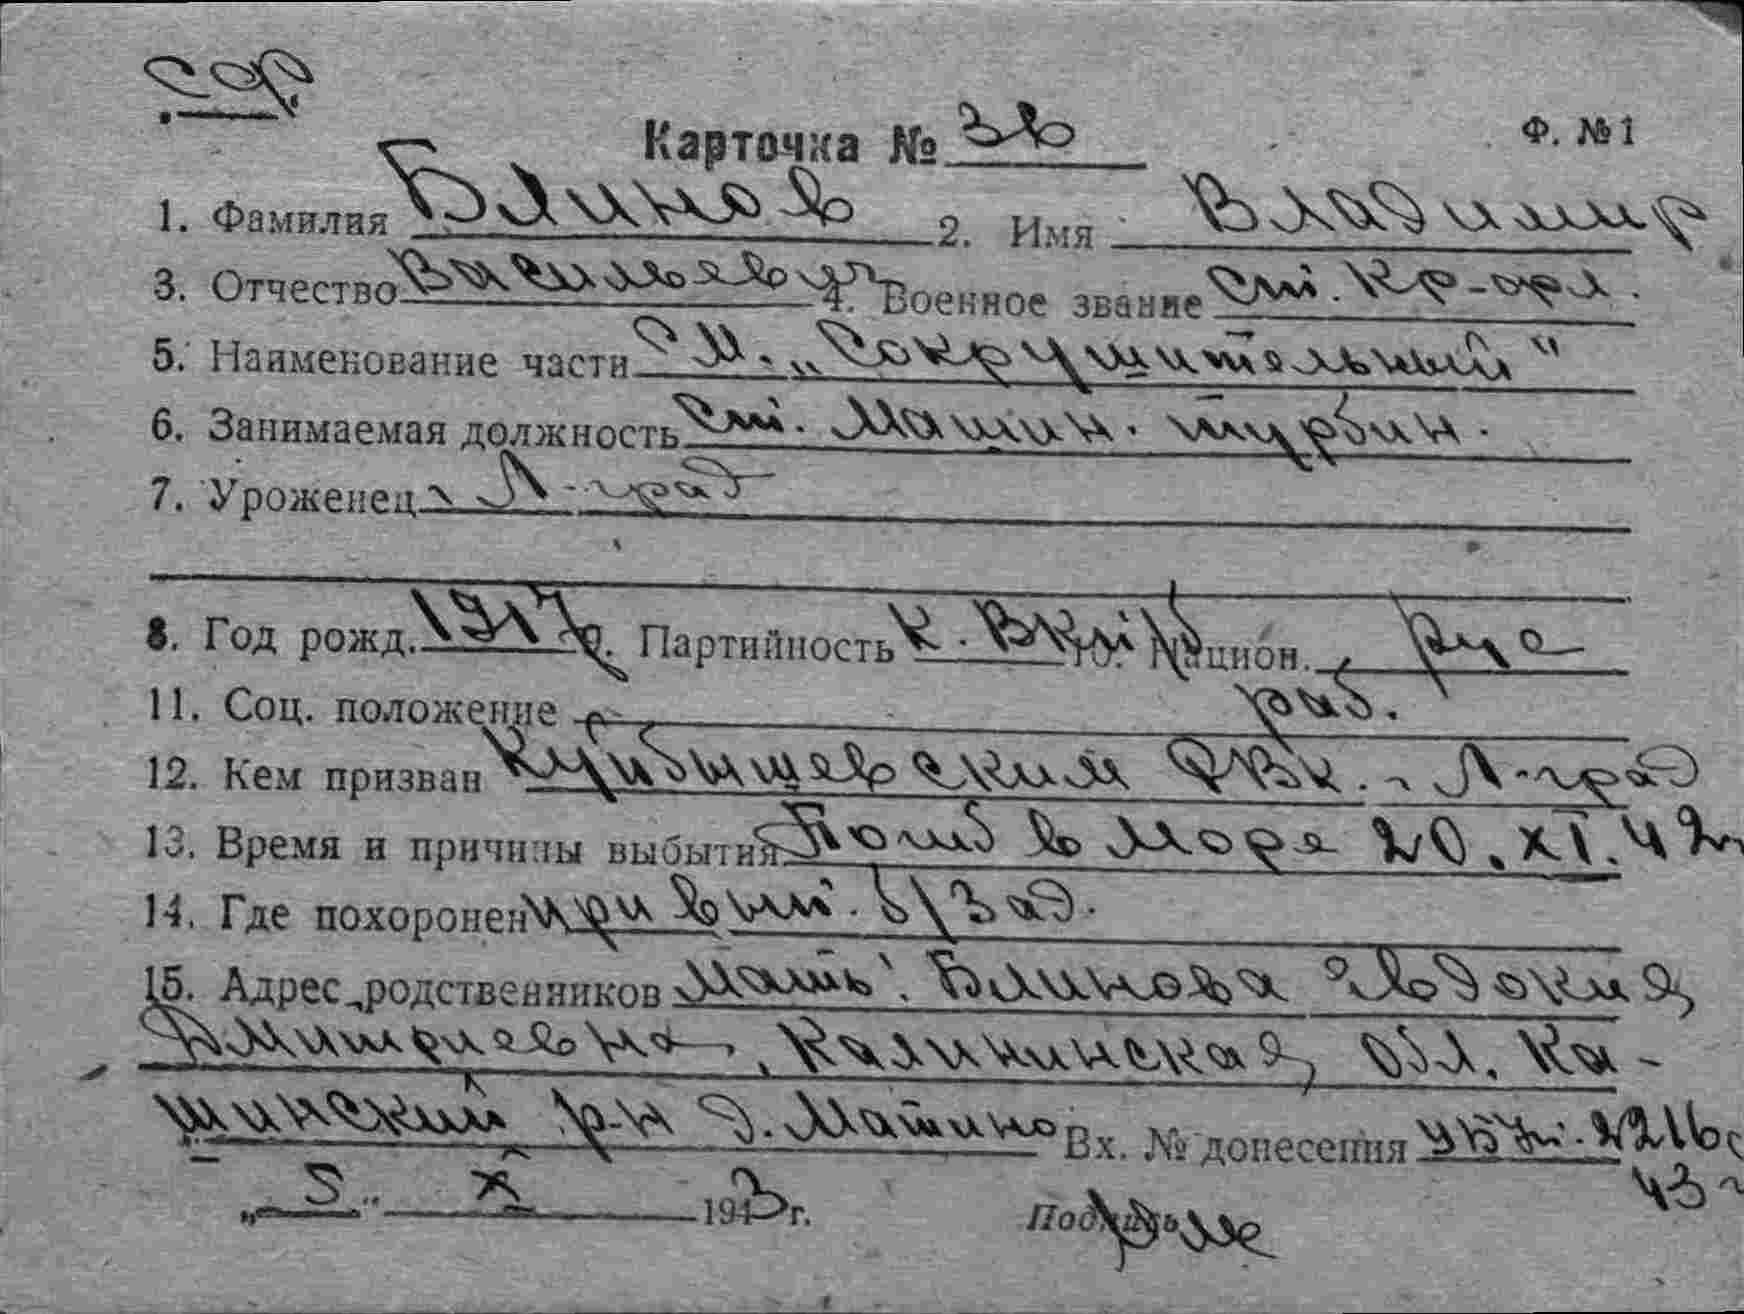 Карточка № 3в
Ф. №1
1. Фамилия Блинов 2. Имя Владимир
3. Отчество Васильевич 4. Военное звание ст. Кр-офл.
5. Наименование части Э.М. „Сокрушительный"
6. Занимаемая должность ст. Машин. турбин.
7. Уроженец г. Л-град
8. Год рожд. 1917 9. Партийность К. ВКП/б 10. Национ. рус
11. Соц. положение раб.
12. Кем призван Куйбышевским РВК. г. Л-град
13. Время и причины выбытия Погиб в море 20.XI.42г
14. Где похоронен при вып. б/зад.
15. Адрес родственников Мать: Блинова Евдокия
Дмитриевна, Калининская обл. Ка-
шинский р-н д. Матино Вх. № донесения 2216с
43г
„5" X 1943 г. Подпись